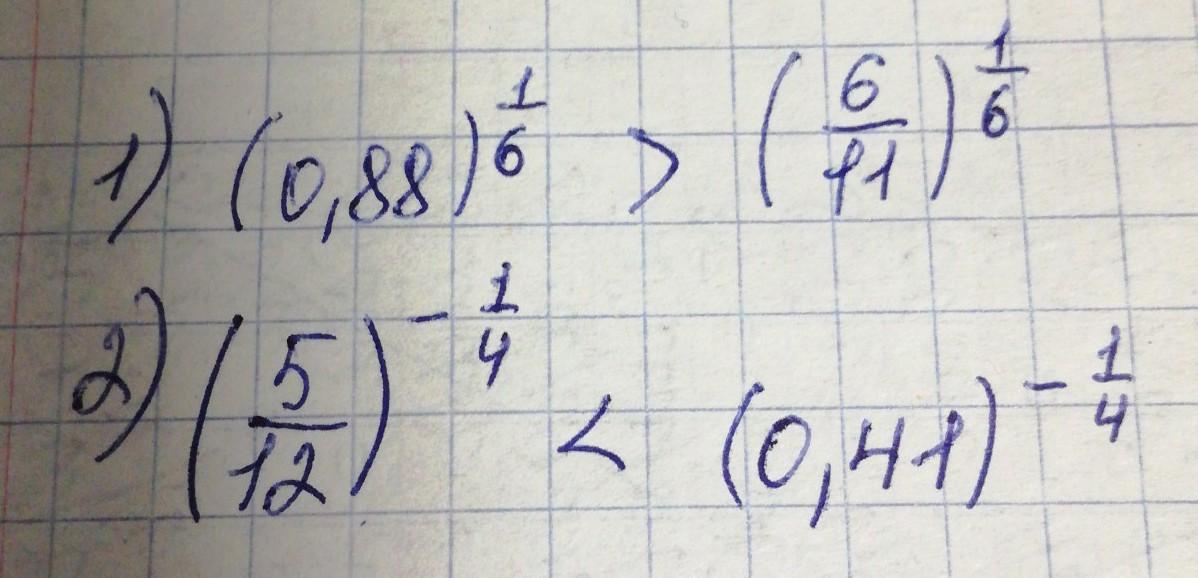 1) (0,88)^(1/6) > (6/11)^(1/6)
2) (5/12)^(-1/4) < (0,41)^(-1/4)